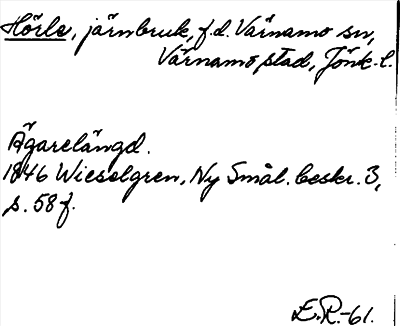 Hörle, järnbruk, f.d. Värnamo sn,
Värnamo stad, Jönk. l.
Ägarelängd.
1846 Wieselgren, Ny Smål. beskr. 3,
s. 58 f.
E.R.-61.